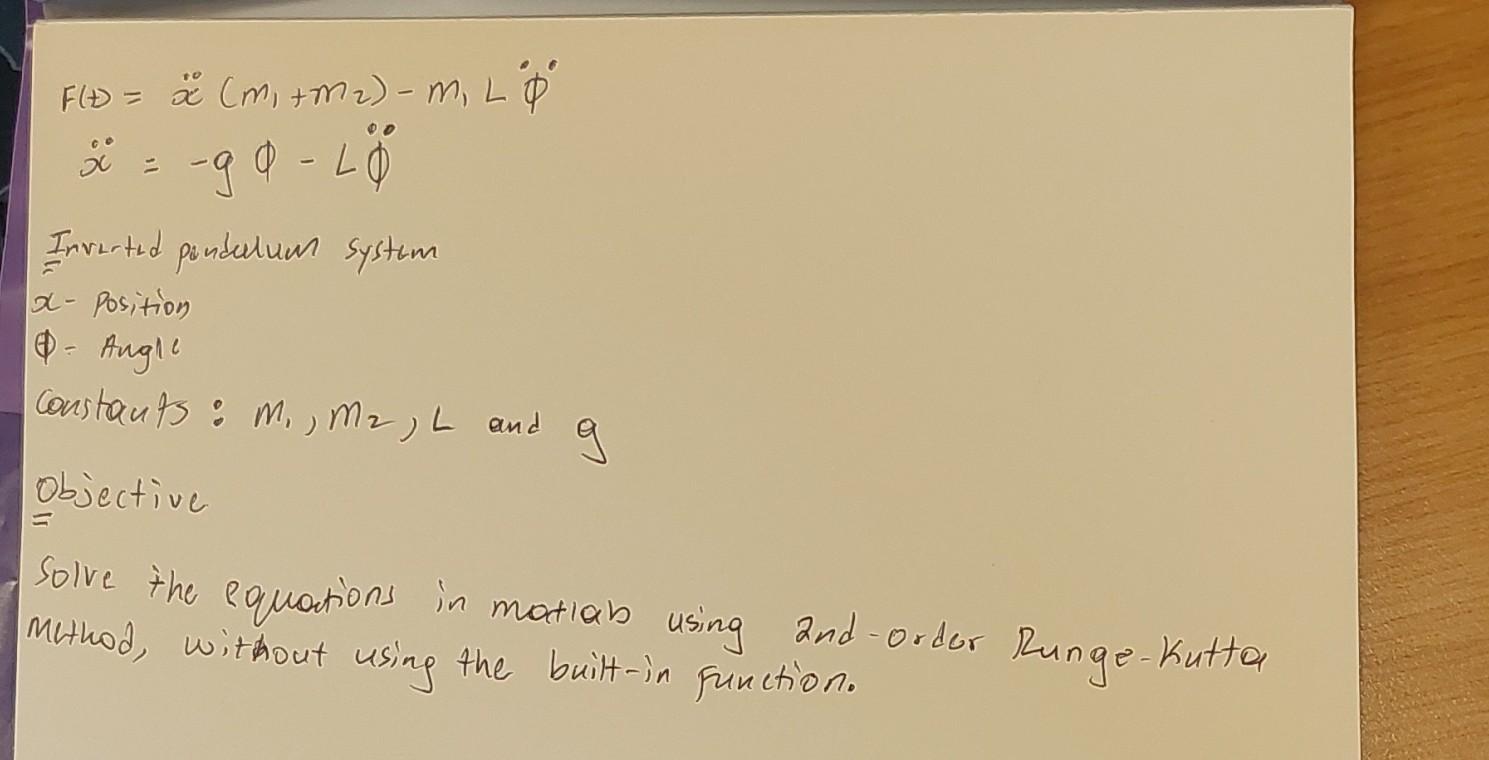 F(t) = ẍ (m₁ + m₂) - m₁ L ϕ̈
ẍ = -g ϕ - L ϕ̈
Inverted pendulum system
x - Position
ϕ - Angle
Constants : m₁, m₂, L and g
Objective
Solve the equations in matlab using 2nd-order Runge-Kutta
Method, without using the built-in function.